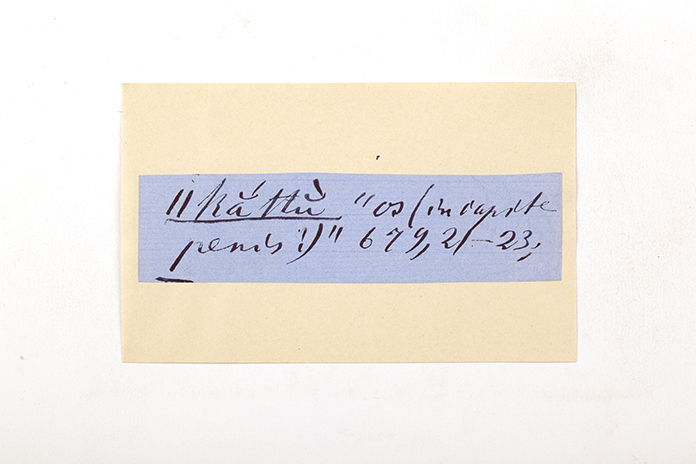 ǁkắttù "os (in capite
penis!)" 679, 21–23;